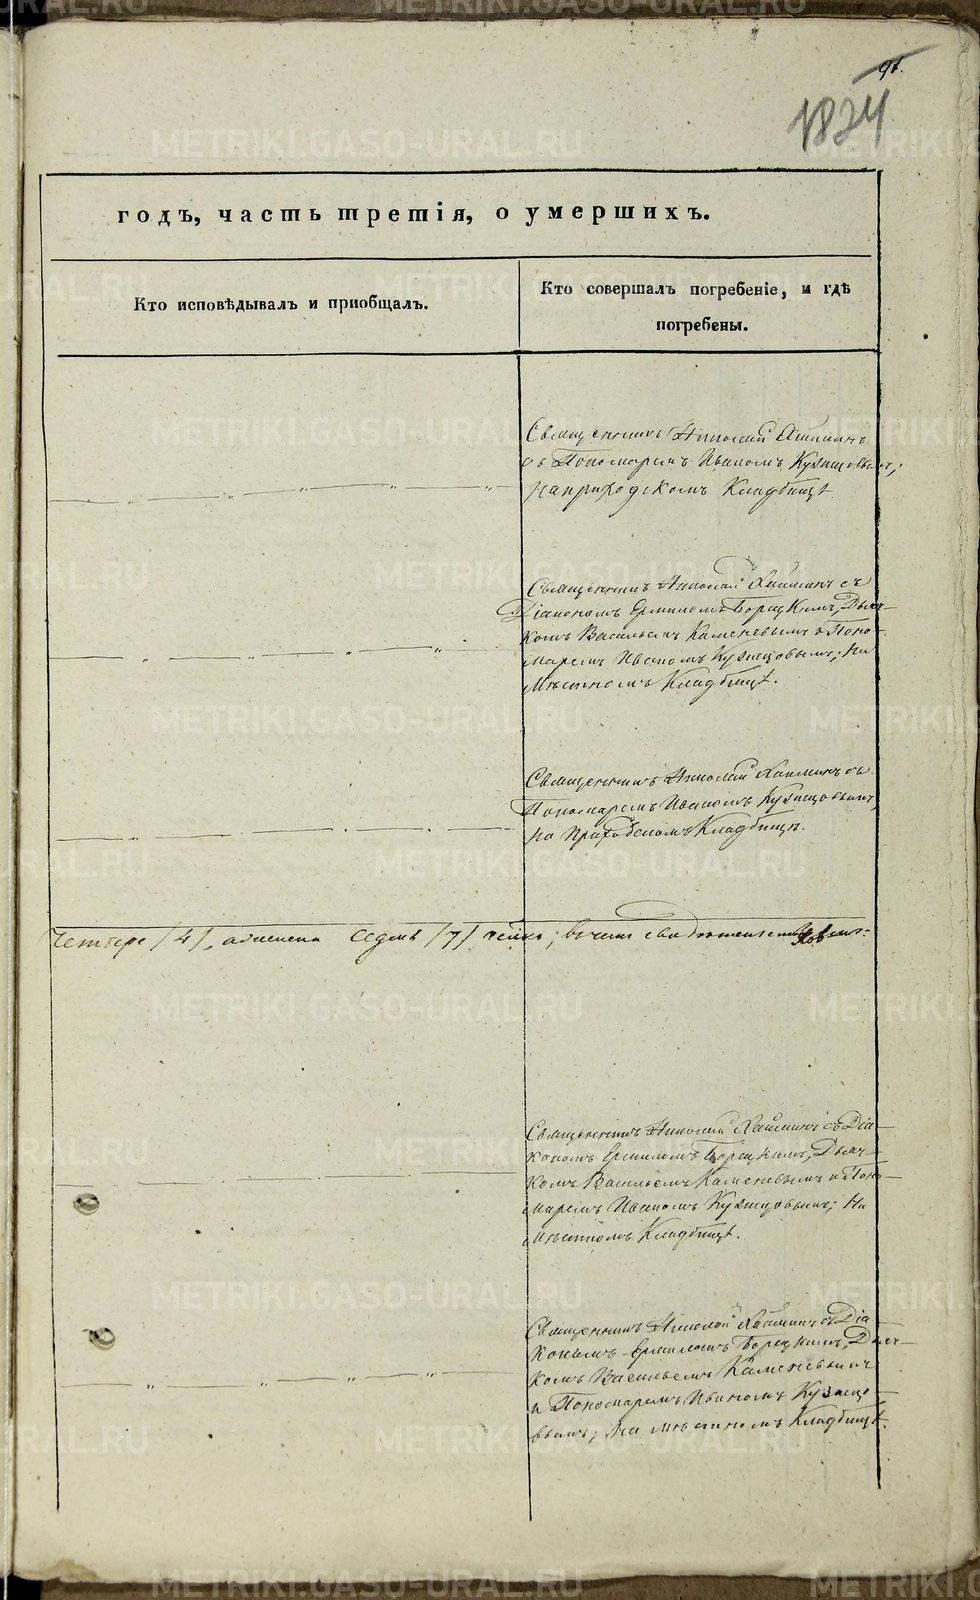 91.
1834
годъ, часть третія, о умершихъ.
Кто исповѣдывалъ и приобщалъ.
Кто совершалъ погребеніе, и гдѣ
погребены.
Священникъ Николай
съ Пономаремъ Иваномъ Кузнецовымъ;
на приходскомъ Кладбищѣ
Священникъ Николай Хаймин съ
Діакономъ Ермиломъ Борецкимъ, Дьяч-
комъ Васильемъ Каменевымъ и Поно-
маремъ Иваномъ Кузнецовымъ; На
Мѣстномъ Кладбищѣ.
Священникъ Николай Хаймин съ
Пономаремъ Иваномъ Кузнецовымъ,
на Приходскомъ Кладбищѣ.
Четыре /4/, а женска Седмь /7/ всемъ
Священникъ Николай Хаймин съ Діа-
кономъ Ермиломъ Борецкимъ, Дьяч-
комъ Васильемъ Каменевымъ и Поно-
маремъ Иваномъ Кузнецовымъ; На
Мѣстномъ Кладбищѣ.
Священникъ Николай Хаймин съ Діа-
кономъ Ермиломъ Борецкимъ, Дьяч-
комъ Васильемъ Каменевымъ
и Пономаремъ Иваномъ Кузнецо-
вымъ; На мѣстномъ Кладбищѣ.
METRIKI.GASO-URAL.RU